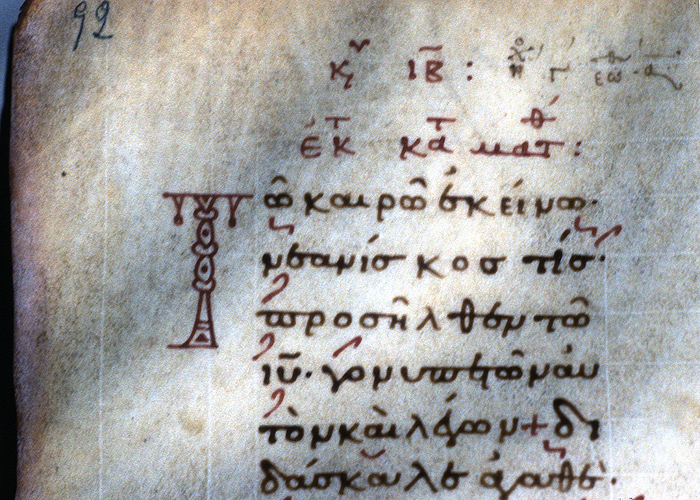 92
κυ ιβ :
ἐκ τ κατ ματθ :
Τῶ καιρῶ ἐκείνω·
νεανίσκοσ τίσ·
προσῆλθεν τῶ
ιυ̅· γονυπετῶν αυ
τὸν καὶ λέγων + δι
δάσκαλε ἀγαθέ·